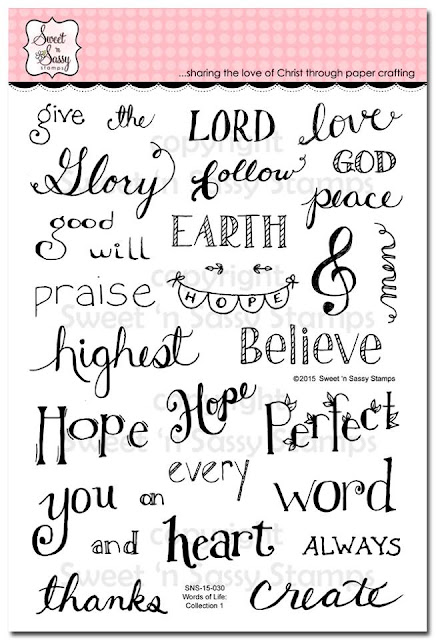 Sweet 'n Sassy stamps
...sharing the love of Christ through paper crafting
give the LORD love
Glory follow GOD
peace
good will EARTH
praise HOPE now
highest Believe
©2015 Sweet 'n Sassy Stamps
Hope Hope Perfect
every
you on word
and heart ALWAYS
SNS-15-030
Words of Life:
Collection 1
thanks Create
copyright
Sweet 'n Sassy Stamps
copyright
Sweet 'n Sassy Stamps
copyright
Sweet 'n Sassy Stamps
copyright
Sweet 'n Sassy Stamps